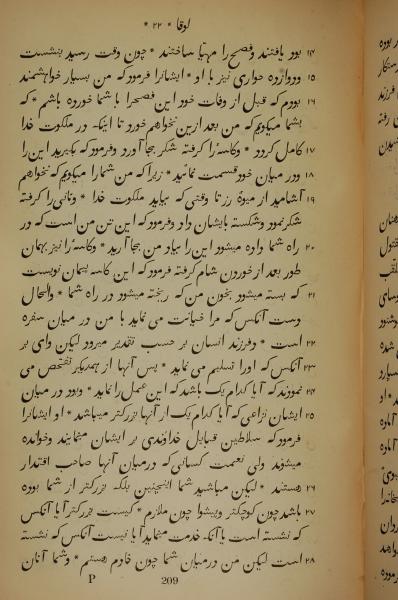 لوقا * ۲۲ *
۱۴ بود یافتند و فصح را مهیا ساختند * چون وقت رسید بنشست
۱۵ و دوازده حواری نیز با او * ایشانرا فرمود که من بسیار خواهشمند
۱۶ بودم که قبل از وفات خود این فصحرا با شما خورده باشم * که
بشما میگویم که من بعد ازین نخواهم خورد تا اینکه در ملکوت خدا
۱۷ کامل گردد * و کاسه را گرفته شکر بجا آورد و فرمود که بگیرید این را
۱۸ و در میان خود قسمت نمائید * زیرا که من شما را میگویم که نخواهم
۱۹ آشامید از میوهٔ رز تا وقتی که بیاید ملکوت خدا * و نانی را گرفته
شکر نمود و شکسته بایشان داد و فرمود که این تن من است که در
۲۰ راه شما داده میشود این را بیاد من بجا آرید * و کاسه را نیز بهمان
طور بعد از خوردن شام گرفته فرمود که این کاسه پیمان نویست
۲۱ که بسته میشود بخون من که ریخته میشود در راه شما * والحال
دست آنکس که مرا خیانت می نماید با من در میان سفره
۲۲ است * و فرزند انسان بر حسب تقدیر میرود لیکن وای بر
۲۳ آنکس که او را تسلیم می نماید * پس آنها از همدیگر تفحص می
۲۴ نمودند که آیا کدام یک باشد که این عمل را نماید * و بود در میان
۲۵ ایشان نزاعی که آیا کدام یک از آنها بزرگتر میباشد * او ایشانرا
فرمود که سلاطین قبایل خداوندی بر ایشان مینمایند و خوانده
میشوند ولی نعمت کسانی که در میان آنها صاحب اقتدار
۲۶ هستند * لیکن میباشید شما اینچنین بلکه بزرگتر از شما بوده
۲۷ باشد چون کوچکتر و پیشوا چون ملازم * کیست بزرگتر آیا آنکس
که نشسته است یا آنکه خدمت مینماید آیا نیست آنکس که نشسته
۲۸ است لیکن من در میان شما چون خادم هستم * و شما آنان
P 209